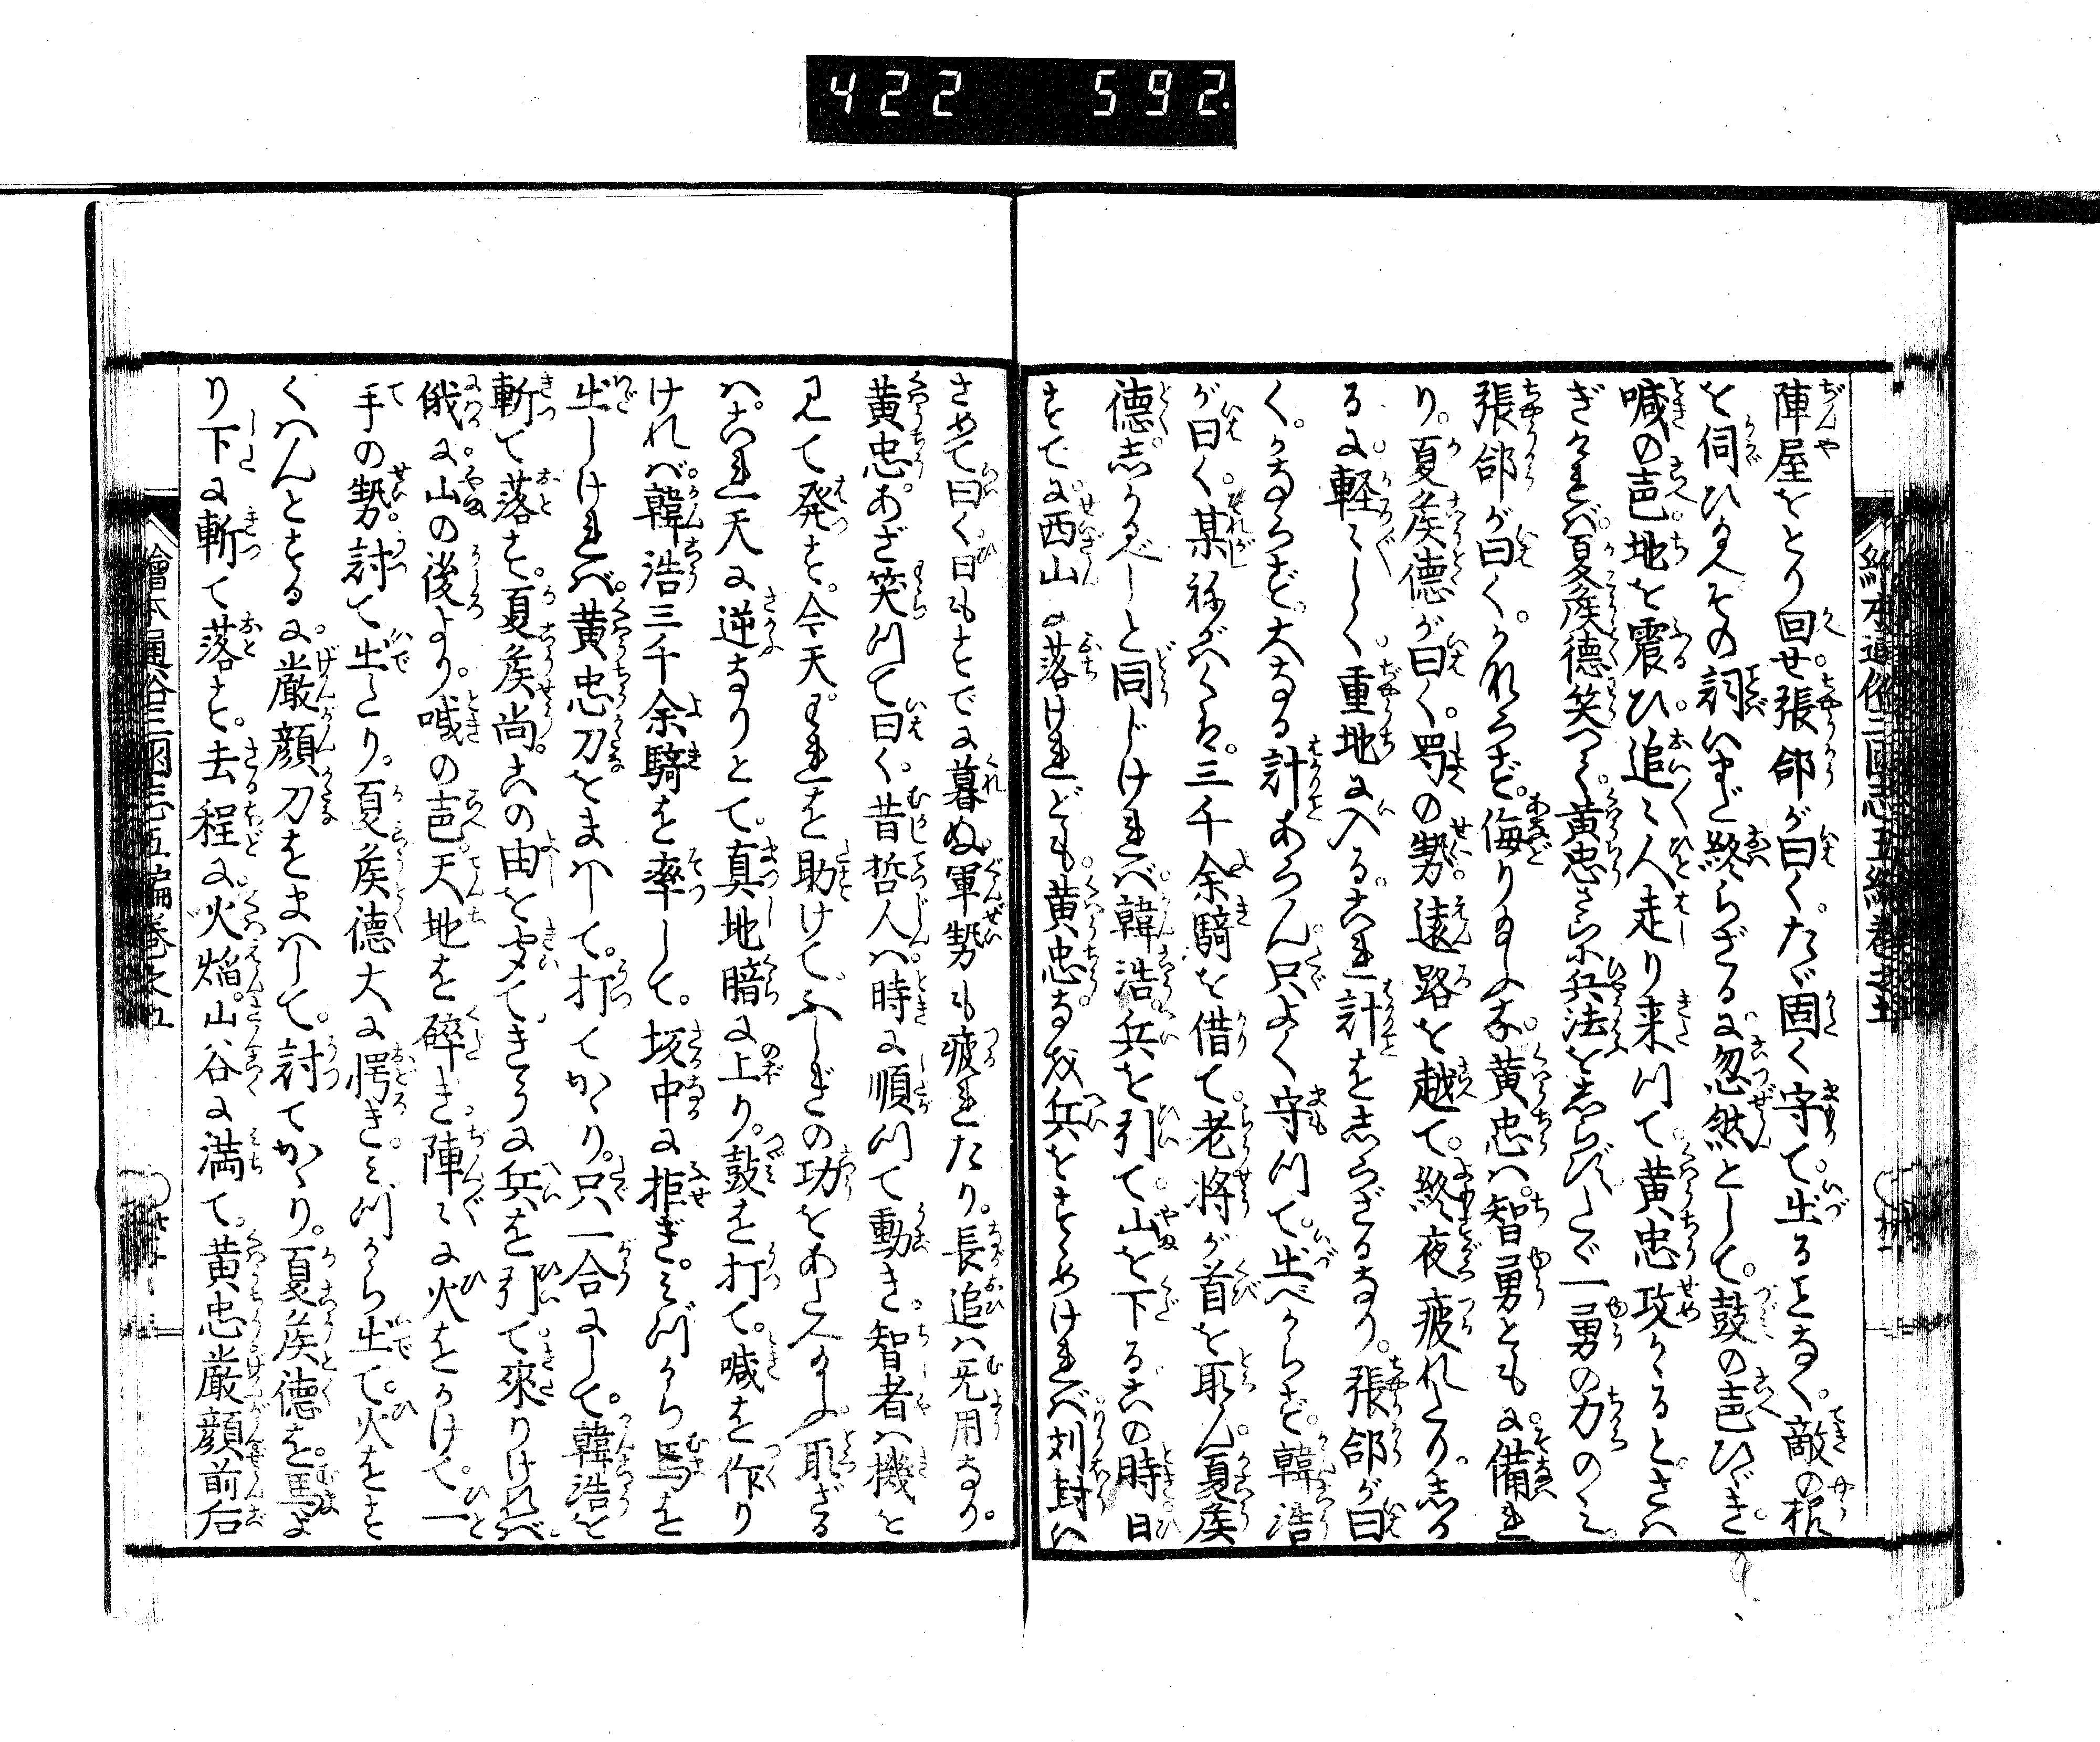 422 592
繪本通俗三國志五編卷之五
陣屋をとり回せ。張郃が曰く。たゞ固く守て。出ることなく。敵の根
を伺ひ給へその詞いまだ終らざるに。忽然として。鼓の声ひゞき。
喊の声。地を震ひ。追々人走り来つて。黄忠攻かゝるとさは
ぎければ。夏侯徳笑つて。黄忠さらに兵法をしらず。たゞ一勇の力のみ。
張郃が曰く。かれらを侮り給ふな。黄忠は。智勇ともに。備れ
り。夏侯徳が曰く。蜀の勢。遠路を越て。終夜疲れたり。しか
るに。軽々しく。重地に入る。これ計をしらざるなり。張郃が曰
く。かならず。大なる計あらん只よく守つて。出べからず。韓浩
が曰く。某ねがくは。三千余騎を借て。老将が首を取ん。夏侯
徳しかるべしと同じければ。韓浩兵を引て。山を下る。この時日
すでに。西山に落けれども。黄忠なを兵をすゝめければ。刘封い
さめて曰く日もすでに暮ぬ。軍勢も疲れたり。長追は无用なり。
黄忠。あざ笑つて曰く。昔哲人は時に順つて動き。智者は機を
見て発す。今天。われを助けて。ふしぎの功をあたへ給ふ。取ざる
は。これ天に逆なりとて。真地暗に上り。鼓を打て。喊を作り
ければ。韓浩三千余騎を率して。垓中に拒ぎ。みづから馬を
出しければ。黄忠刀をまはして。打てかゝり。只一合にして。韓浩を
斬て落す。夏侯尚。この由を聞て。きうに兵を引て。來りければ。
俄に。山の後より。喊の声。天地を碎き。陣々に火をかけて。一
手の勢。討て出たり。夏侯徳大に愕き。みづから出て。火をと
くはんとする。に。厳顔刀をまはして。討てかゝり。夏侯徳を。馬よ
り下に斬て落す。去程に。火焔。山谷に満て。黄忠厳顔前后
繪本通俗三國志五編卷之五